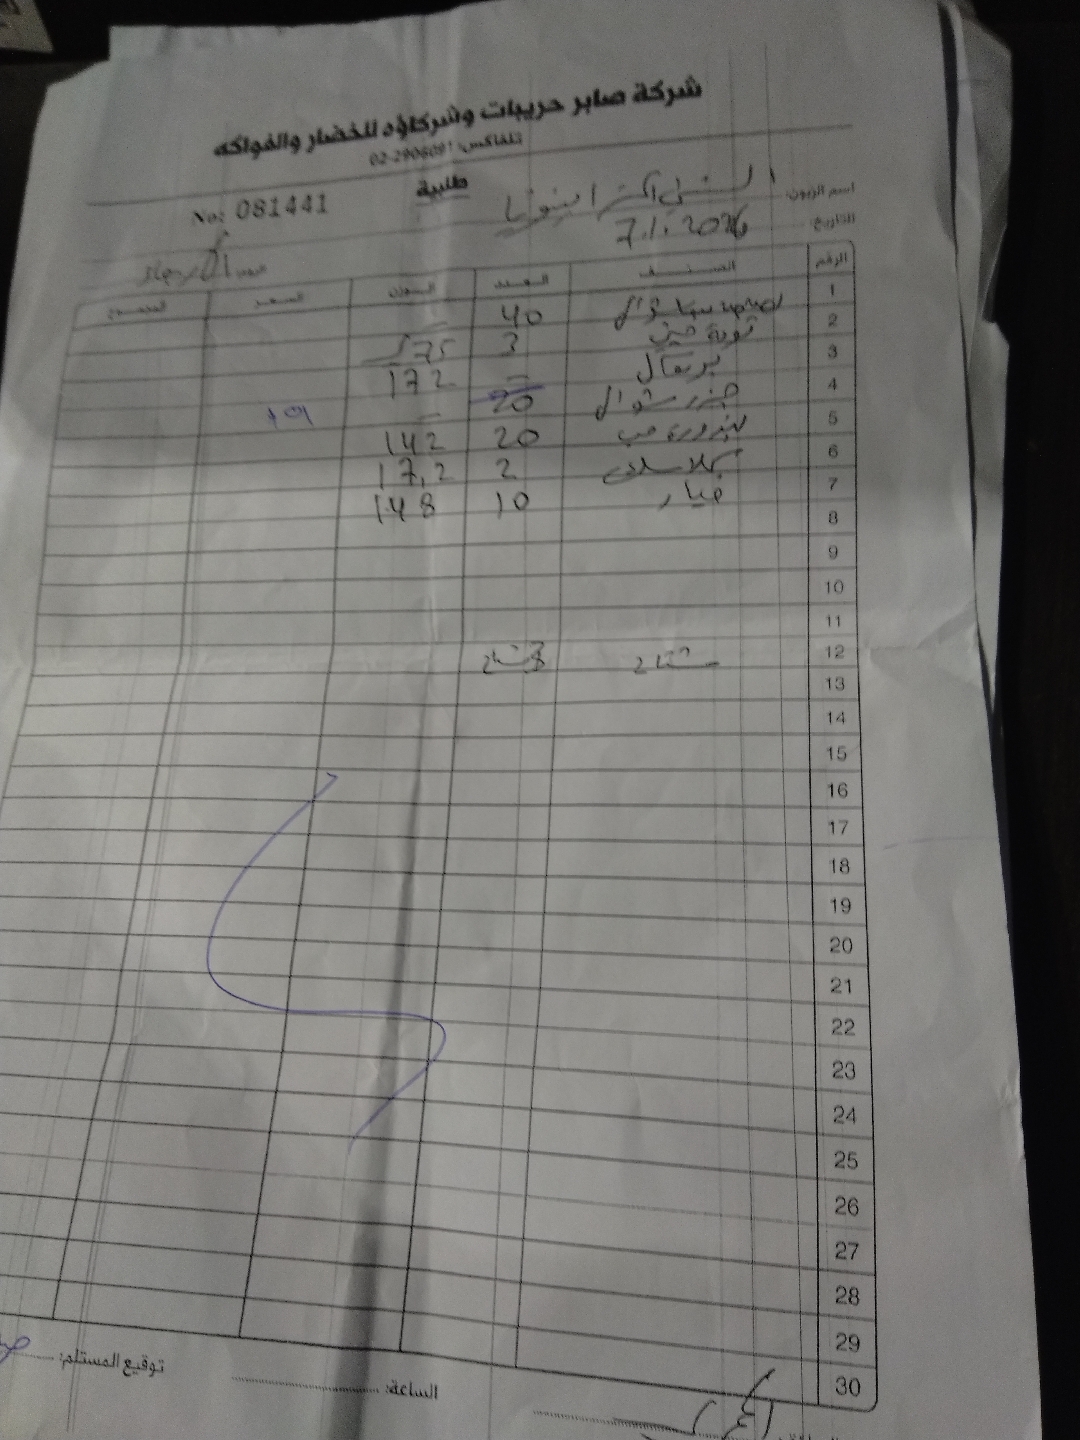 شركة صابر حريبات وشركاؤه للخضار والفواكه
تلفاكس: 02-2906091
طلبية
No: 081441
اسم الزبون:
التاريخ: 7.1.2026
اليوم: الأربعاء
الرقم الصنف العدد الوزن السعر المجموع
1 شوال 40
2 3 575
3 برتقال – 172
4 جزر شوال 20 –
5 بندورة حب 20 142
6 2 17,2
7 خيار 10 148
8
9
10
11
12
13
14
15
16
17
18
19
20
21
22
23
24
25
26
27
28
29
30
الساعة: توقيع المستلم: